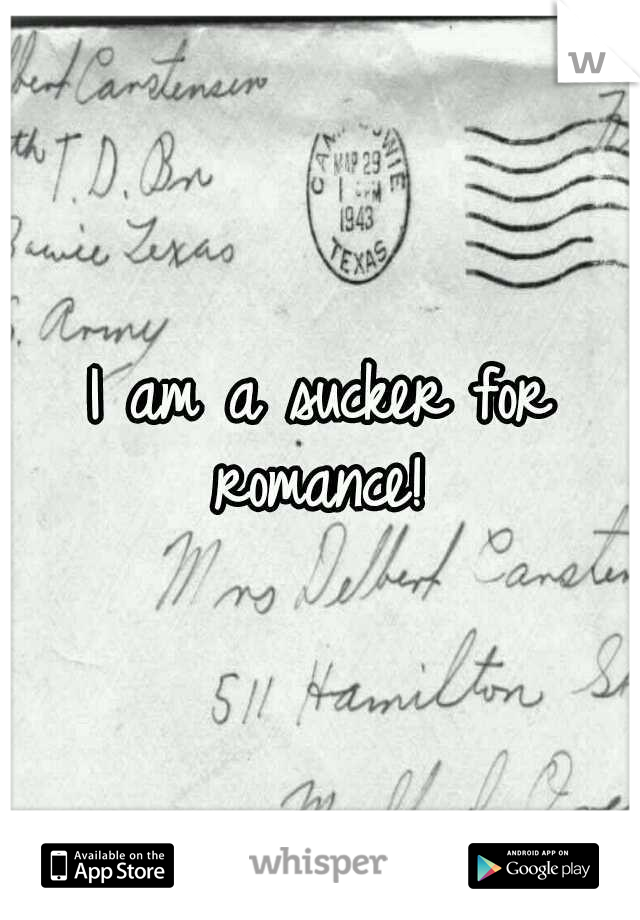 w
bert Carstensen
th T. D. Bn
Bowie Texas
S. Army
CAMP BOWIE
MAR 29
1 PM
1943
TEXAS
I am a sucker for
romance!
Mrs Delbert Carsten
511 Hamilton St
Available on the
App Store
whisper
ANDROID APP ON
Google play